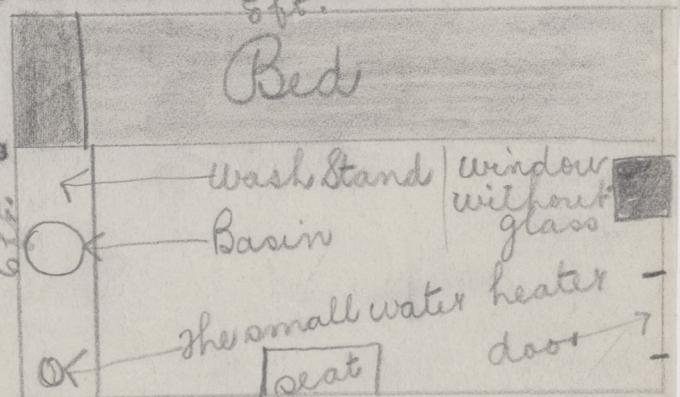 8ft.
Bed
Wash Stand
window
without
glass
Basin
The small water heater
door
seat